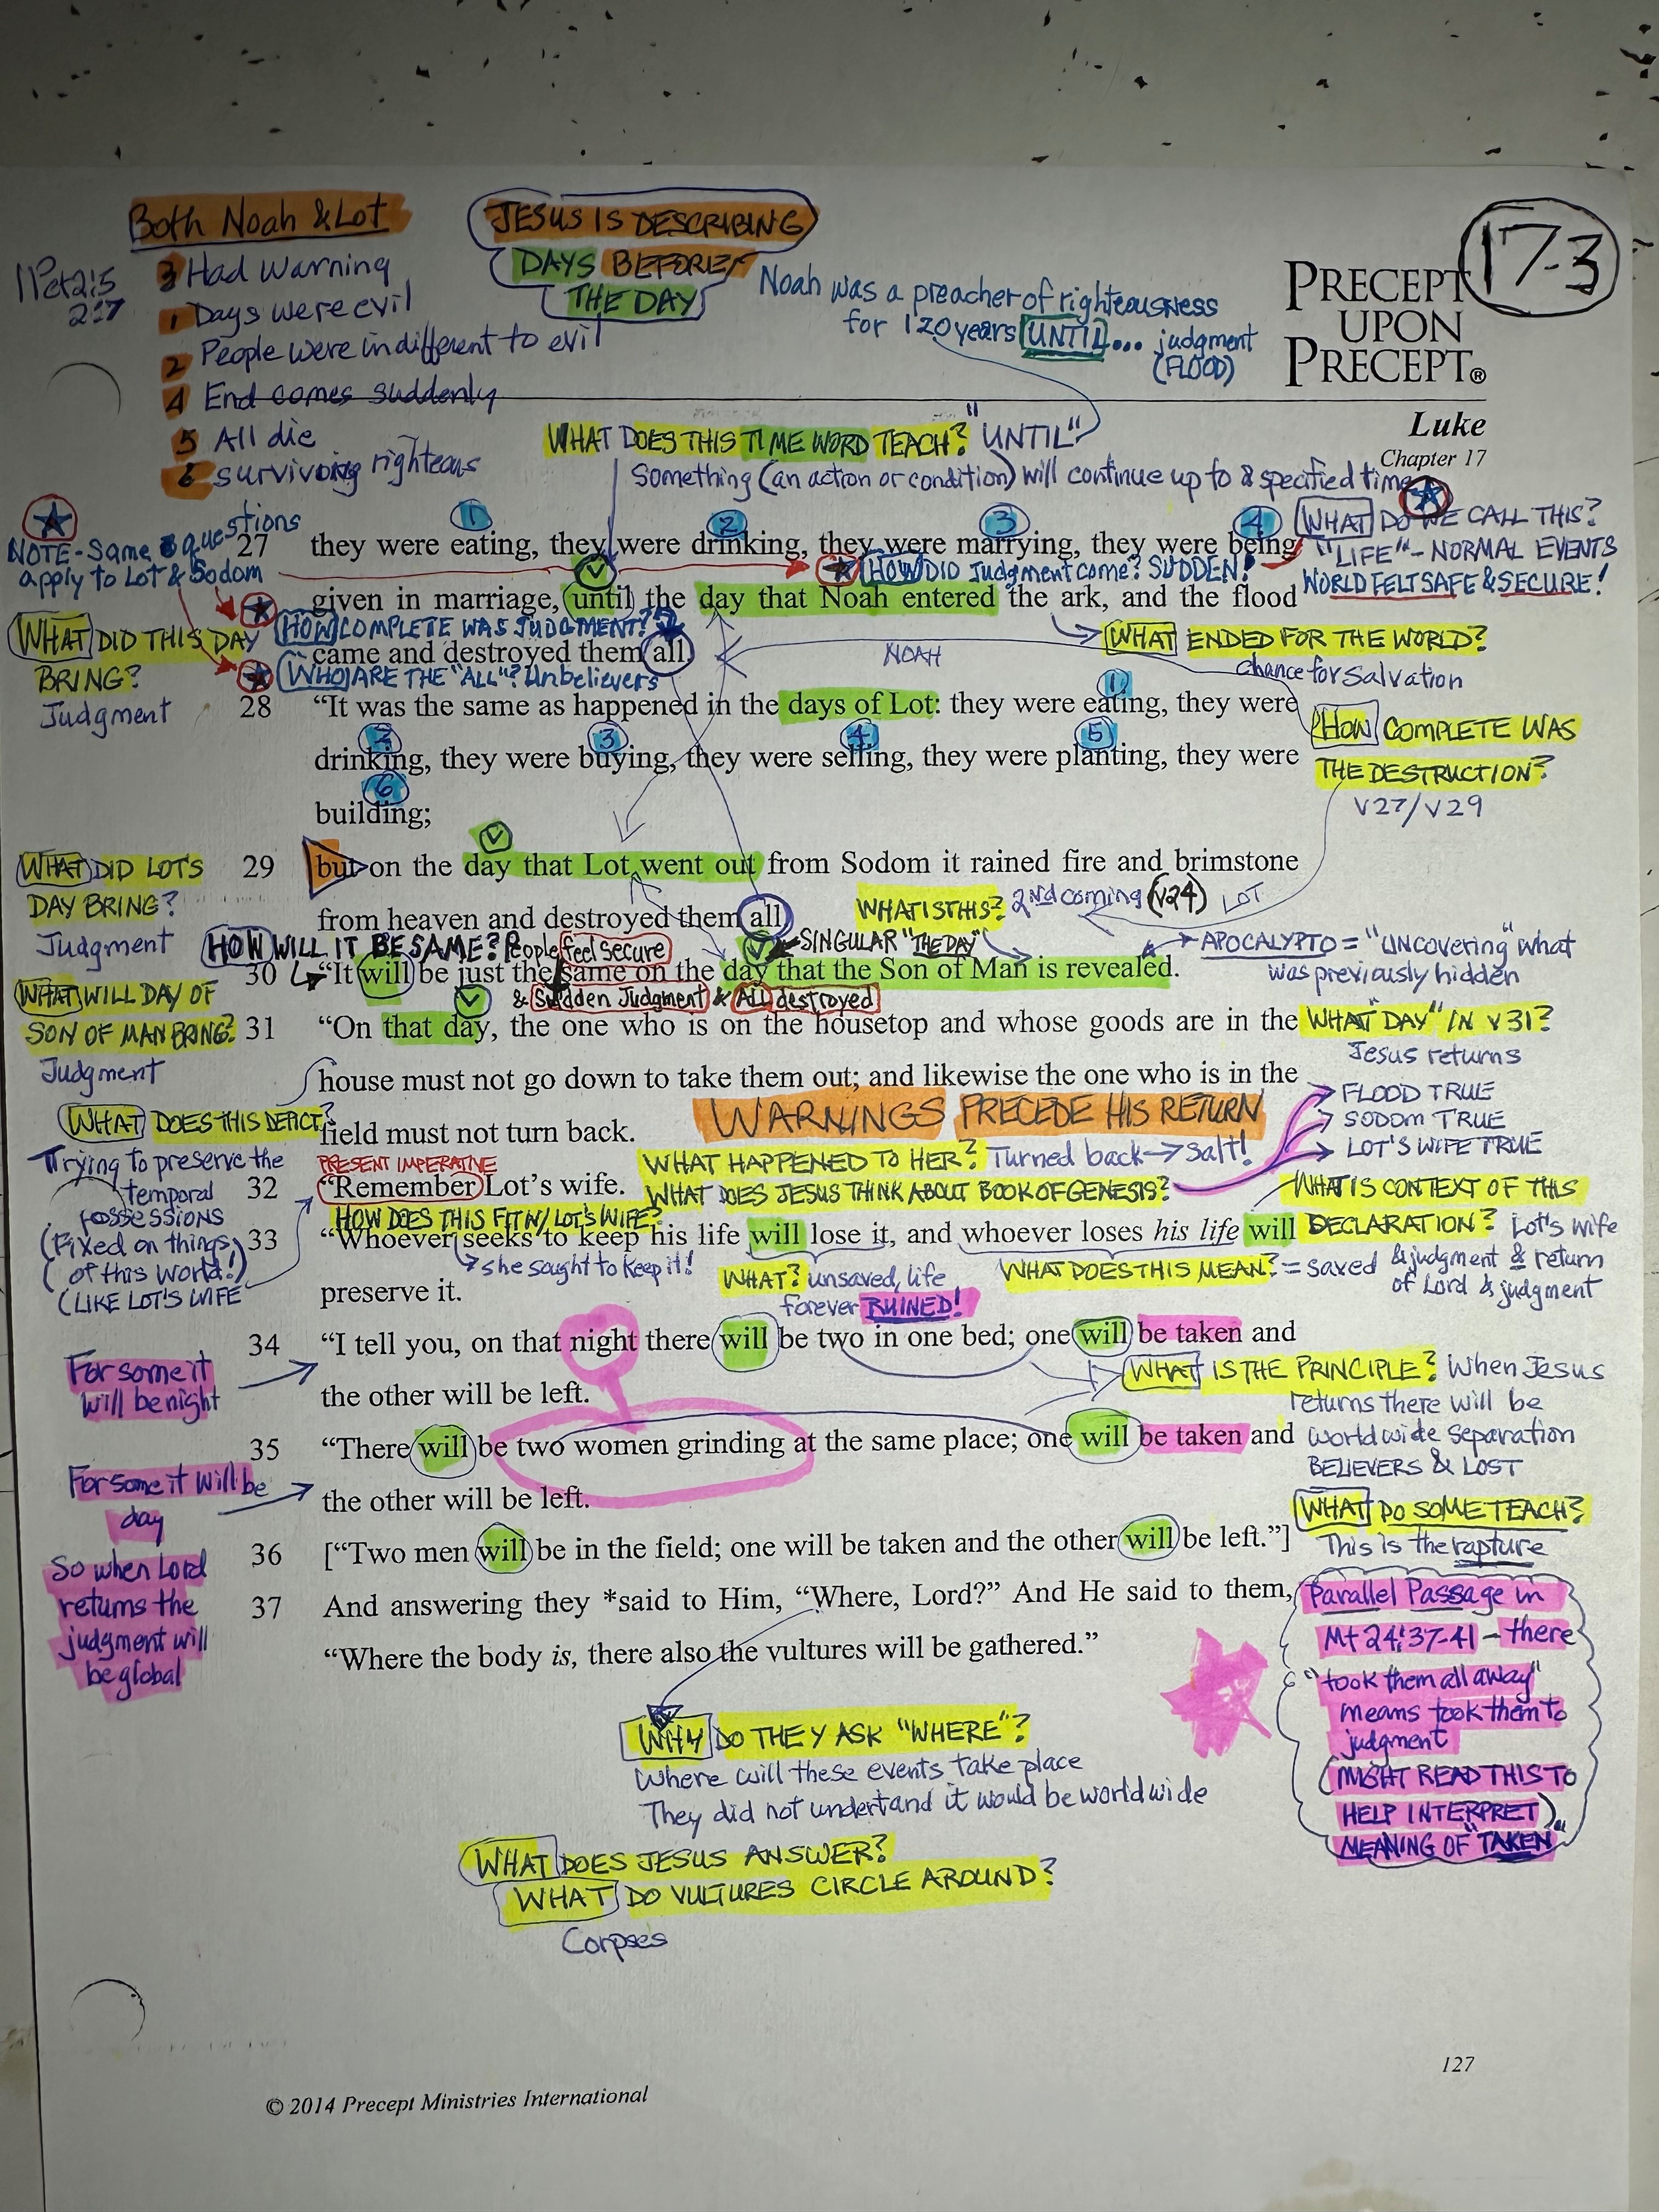 Both Noah & Lot
3 Had Warning
1 Days were evil
2 People were indifferent to evil
4 End comes suddenly
5 All die
6 surviving righteous
2:7
JESUS IS DESCRIBING
DAYS BEFORE
THE DAY
Noah was a preacher of righteousness
for 120 years UNTIL... judgment
(FLOOD)
17-3
PRECEPT
UPON
PRECEPT®
Luke
Chapter 17
WHAT DOES THIS TIME WORD TEACH? "UNTIL"
Something (an action or condition) will continue up to a specified time
NOTE - Same questions
apply to Lot & Sodom
1 2 3 4
WHAT DO WE CALL THIS?
"LIFE" - NORMAL EVENTS
WORLD FELT SAFE & SECURE!
27 they were eating, they were drinking, they were marrying, they were being
HOW DID Judgment come? SUDDEN!
given in marriage, until the day that Noah entered the ark, and the flood
WHAT DID THIS DAY
BRING?
Judgment
HOW COMPLETE WAS JUDGMENT?
WHAT ENDED FOR THE WORLD?
chance for Salvation
came and destroyed them all.
NOAH
WHO ARE THE "ALL"? Unbelievers
1
28 "It was the same as happened in the days of Lot: they were eating, they were
2 3 4 5
HOW COMPLETE WAS
THE DESTRUCTION?
V27/V29
drinking, they were buying, they were selling, they were planting, they were
6
building;
WHAT DID LOT'S
DAY BRING?
Judgment
29 but on the day that Lot went out from Sodom it rained fire and brimstone
from heaven and destroyed them all.
WHAT IS THIS? 2nd coming (v24)
LOT
HOW WILL IT BE SAME? People feel secure
& Sudden Judgment & ALL destroyed
SINGULAR "THE DAY"
APOCALYPTO = "UNCOVERING" what
was previously hidden
30 "It will be just the same on the day that the Son of Man is revealed.
WHAT WILL DAY OF
SON OF MAN BRING?
Judgment
31 "On that day, the one who is on the housetop and whose goods are in the
WHAT "DAY" IN V31?
Jesus returns
house must not go down to take them out; and likewise the one who is in the
WARNINGS PRECEDE HIS RETURN
FLOOD TRUE
SODOM TRUE
LOT'S WIFE TRUE
field must not turn back.
WHAT DOES THIS DEPICT?
Trying to preserve the
temporal
possessions
(Fixed on things
of this world!)
(LIKE LOT'S WIFE
PRESENT IMPERATIVE
WHAT HAPPENED TO HER? Turned back → Salt!
32 "Remember Lot's wife.
WHAT DOES JESUS THINK ABOUT BOOK OF GENESIS?
WHAT IS CONTEXT OF THIS
DECLARATION? Lot's wife
& judgment & return
of Lord & judgment
HOW DOES THIS FIT W/ LOT'S WIFE?
33 "Whoever seeks to keep his life will lose it, and whoever loses his life will
she sought to keep it!
WHAT? unsaved, life
forever RUINED!
WHAT DOES THIS MEAN? = saved
preserve it.
34 "I tell you, on that night there will be two in one bed; one will be taken and
For some it
will be night
the other will be left.
WHAT IS THE PRINCIPLE? When Jesus
returns there will be
worldwide separation
BELIEVERS & LOST
35 "There will be two women grinding at the same place; one will be taken and
For some it will be
day
the other will be left.
WHAT DO SOME TEACH?
This is the rapture
36 ["Two men will be in the field; one will be taken and the other will be left."]
So when Lord
returns the
judgment will
be global
37 And answering they *said to Him, "Where, Lord?" And He said to them,
"Where the body is, there also the vultures will be gathered."
Parallel Passage in
Mt 24:37-41 - there
"took them all away"
means took them to
judgment
(MIGHT READ THIS TO
HELP INTERPRET)
MEANING OF "TAKEN"
WHY DO THEY ASK "WHERE"?
Where will these events take place
They did not undertand it would be worldwide
WHAT DOES JESUS ANSWER?
WHAT DO VULTURES CIRCLE AROUND?
Corpses
127
© 2014 Precept Ministries International